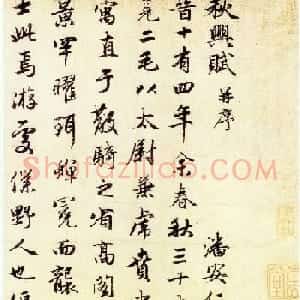 秋興賦 并序
潘安
晉十有四年余春秋三十
見二毛以太尉兼虎賁
寓直于散騎之省高閣
景罕曜珥蟬冕而襲
士此焉游處僕野人也